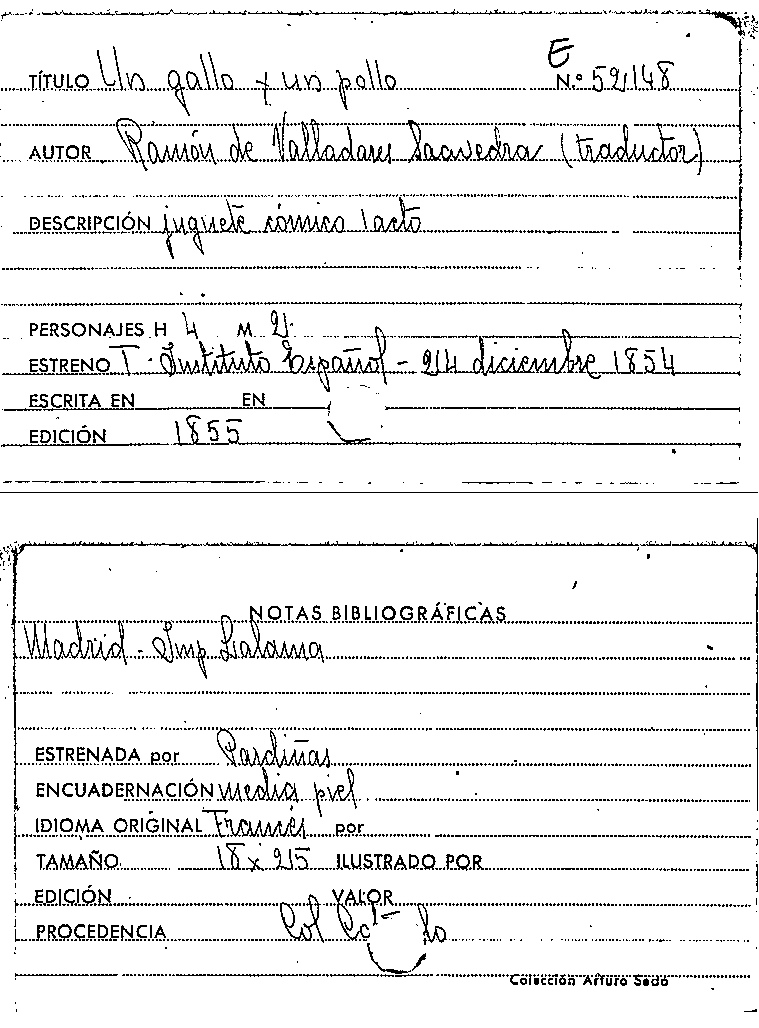 E
TÍTULO Un gallo y un pollo N.º 52148
AUTOR Ramón de Valladares Saavedra (traductor)
DESCRIPCIÓN juguete cómico 1 acto
PERSONAJES H 4 M 2
ESTRENO T. Instituto Español - 24 diciembre 1854
ESCRITA EN EN
EDICIÓN 1855
NOTAS BIBLIOGRÁFICAS
Madrid - Imp Lalama
ESTRENADA por Pardiñas
ENCUADERNACIÓN media piel
IDIOMA ORIGINAL Francés por
TAMAÑO 18 x 25 ILUSTRADO POR
EDICIÓN VALOR
PROCEDENCIA Col
Colección Arturo Sedó